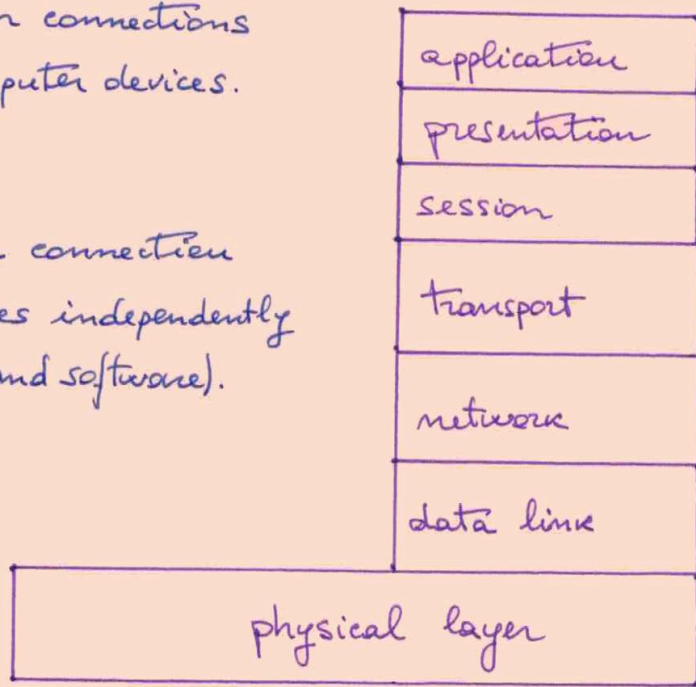 n connections
puter devices.
connection
es independently
and software).
application
presentation
session
transport
network
data link
physical layer